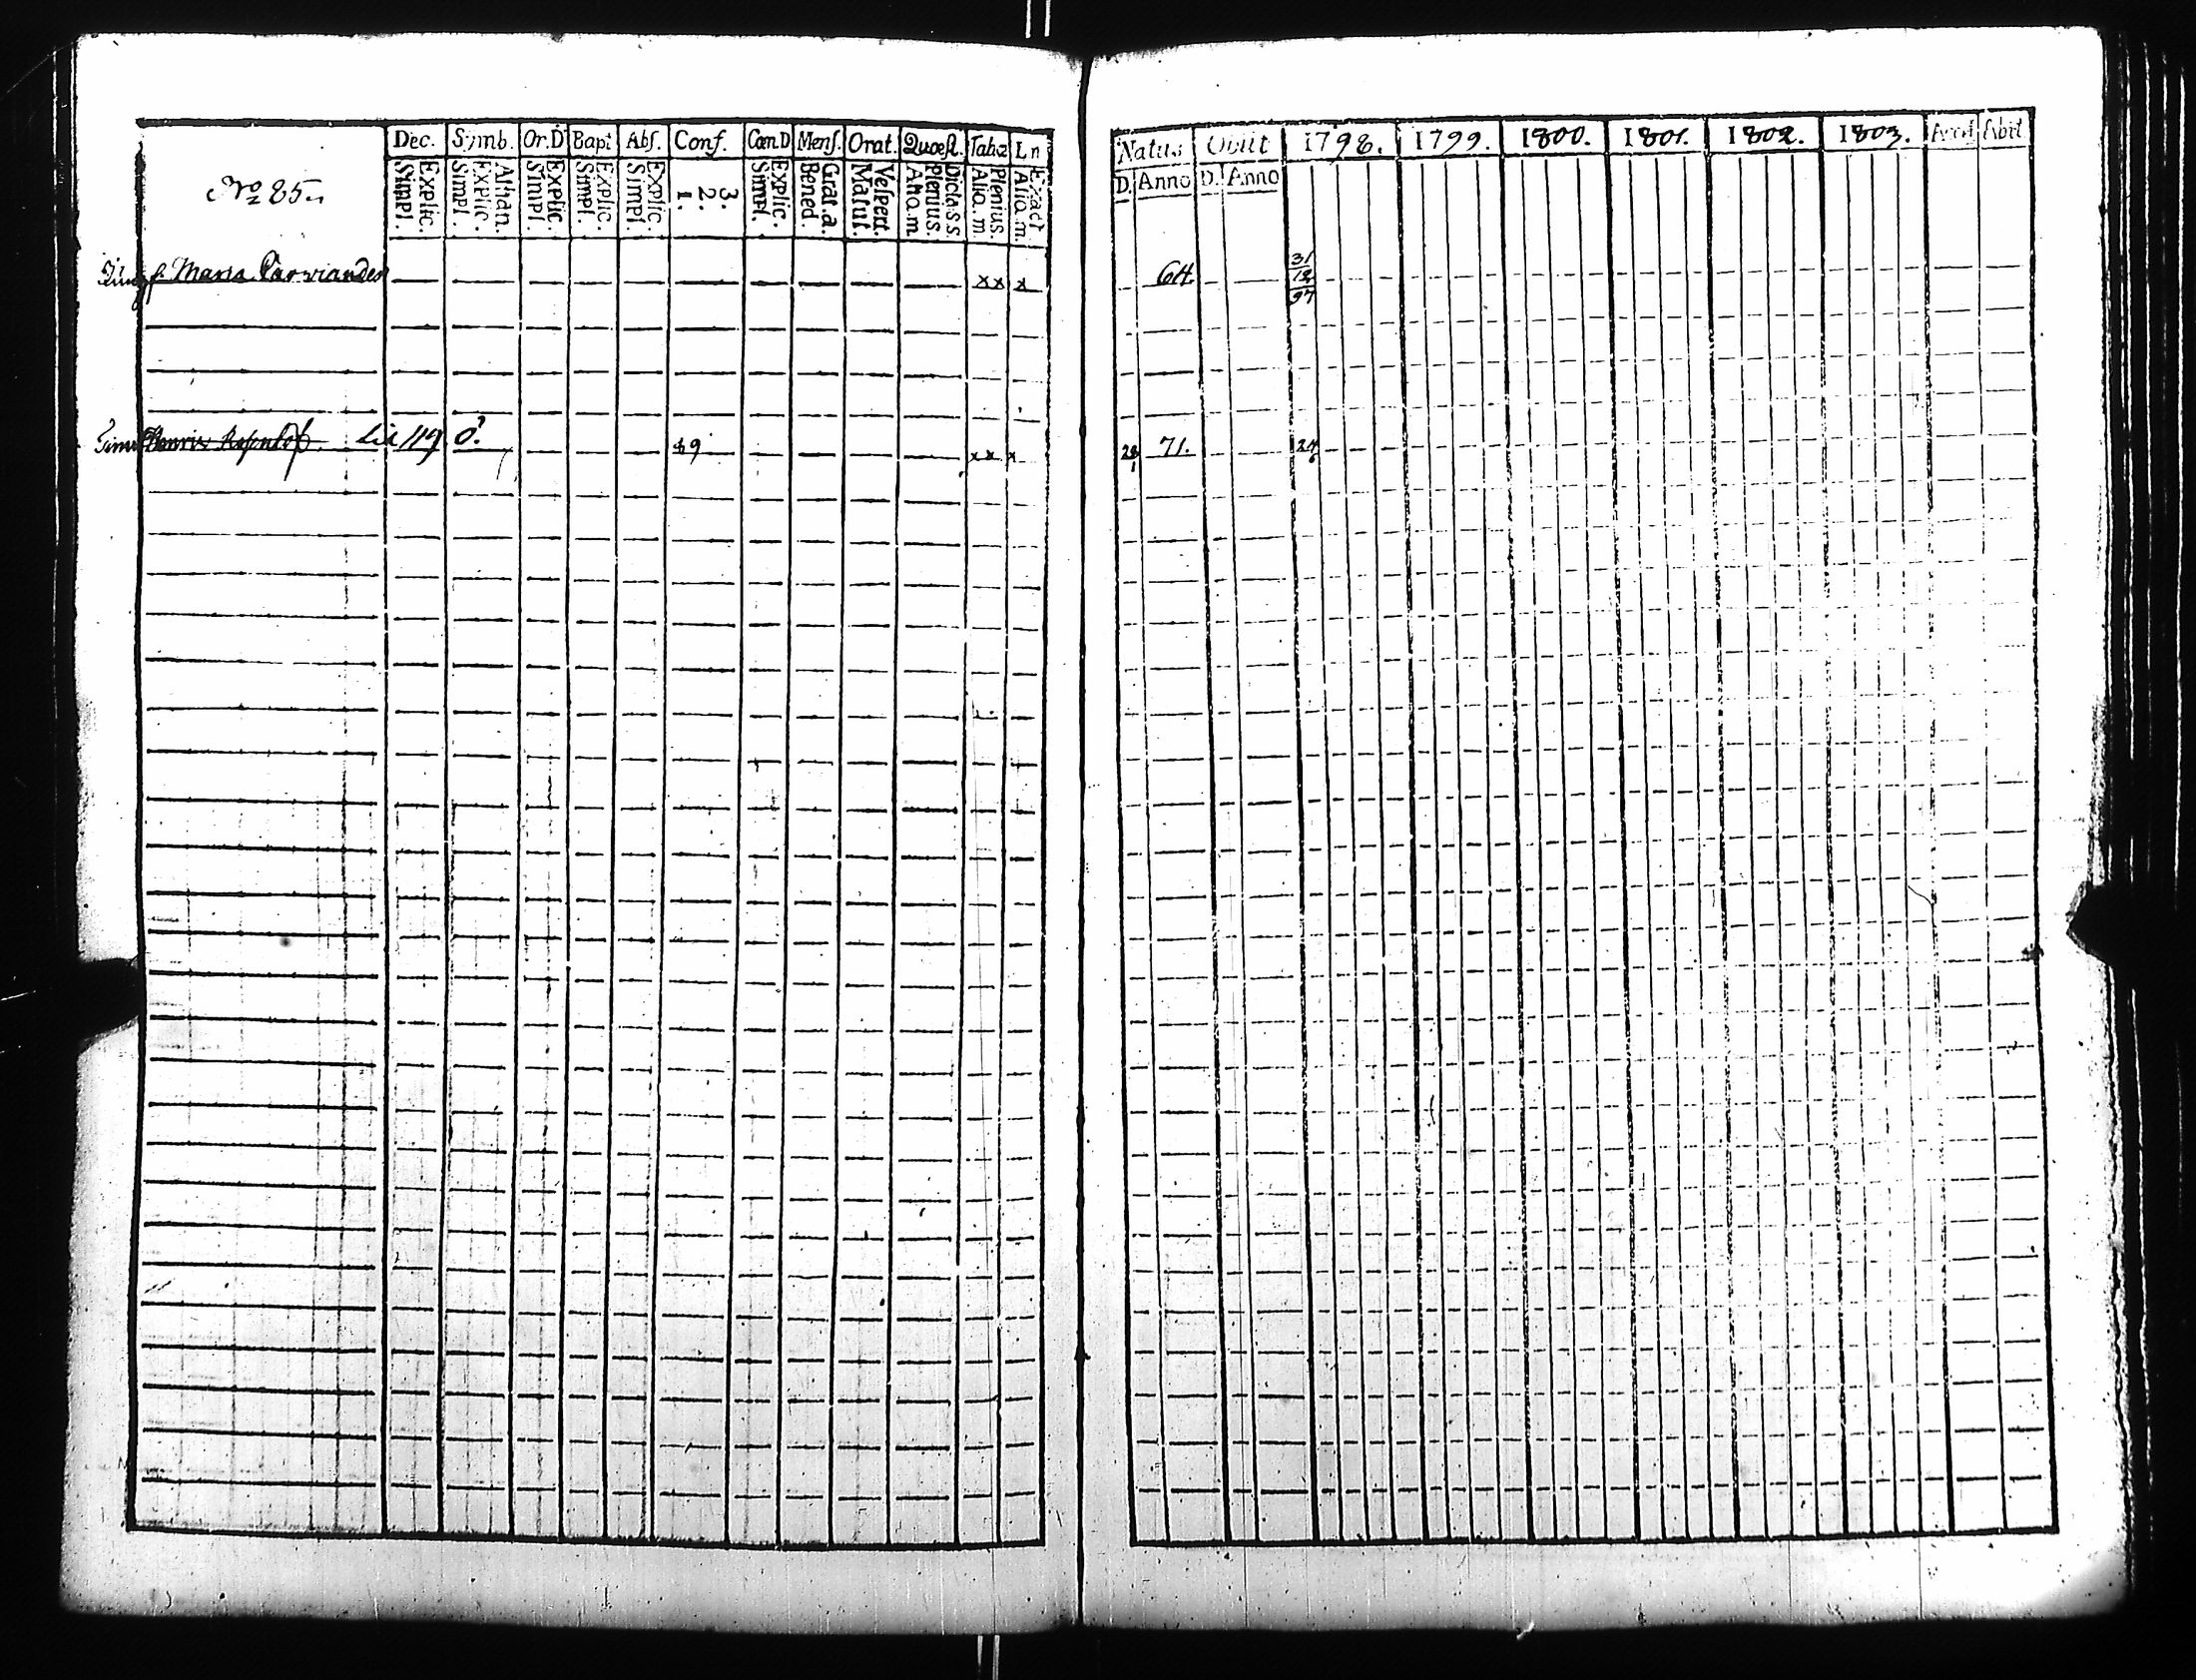 Dec. Symb. Or.D Bapt Abs. Conf. Cœn.D Mens. Orat. Quœst. Tab.œ Ln
No 85.
Explic. Simpl.
Athan. Explic. Simpl.
Explic. Simpl.
Explic. Simpl.
Explic. Simpl.
3. 2. 1.
Explic. Simpl.
Grat.a. Bened.
Vespert. Matut.
Dicta S.S. Plenius. Alio.m.
Plenius. Alio.m.
Exact. Alio.m.
Maria x x x
119 89 x x x
Natus Obiit 1798. 1799. 1800. 1801. 1802. 1803. Abit
D. Anno D. Anno
64. 31 12 97
28 1 71. 24 6